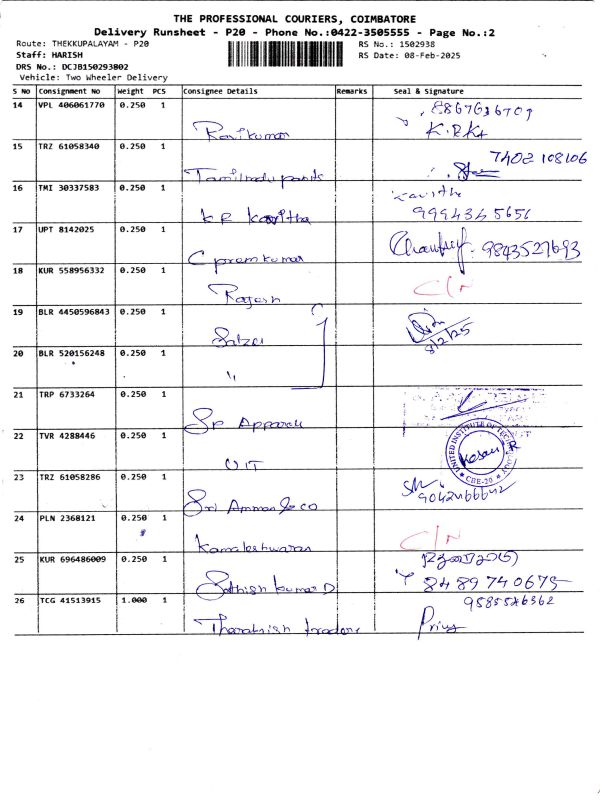 THE PROFESSIONAL COURIERS, COIMBATORE
Delivery Runsheet - P20 - Phone No.:0422-3505555 - Page No.:2
Route: THEKKUPALAYAM - P20
RS No.: 1502938
Staff: HARISH
RS Date: 08-Feb-2025
DRS No.: DCJB150293802
Vehicle: Two Wheeler Delivery
S No Consignment No Weight PCS Consignee Details Remarks Seal & Signature
14 VPL 406061770 0.250 1
Ravikumar
K.RK
15 TRZ 61058340 0.250 1
7402 108106
Tamilnadu paints
16 TMI 30337583 0.250 1
Kavitha
K R Kavitha
9994345656
17 UPT 8142025 0.250 1
C premkumar
9843527693
18 KUR 558956332 0.250 1
Rajesh
C/N
19 BLR 4450596843 0.250 1
Salzer
8/2/25
20 BLR 520156248 0.250 1
"
21 TRP 6733264 0.250 1
SP Apparels
22 TVR 4288446 0.250 1
UIT
UNITED INSTITUTE OF TECHNOLOGY
CBE-20
23 TRZ 61058286 0.250 1
Sri Amman & co
24 PLN 2368121 0.250 1
Kamaleshwaran
C/N
25 KUR 696486009 0.250 1
Sathish kumar D
8489740675
26 TCG 41513915 1.000 1
Priya